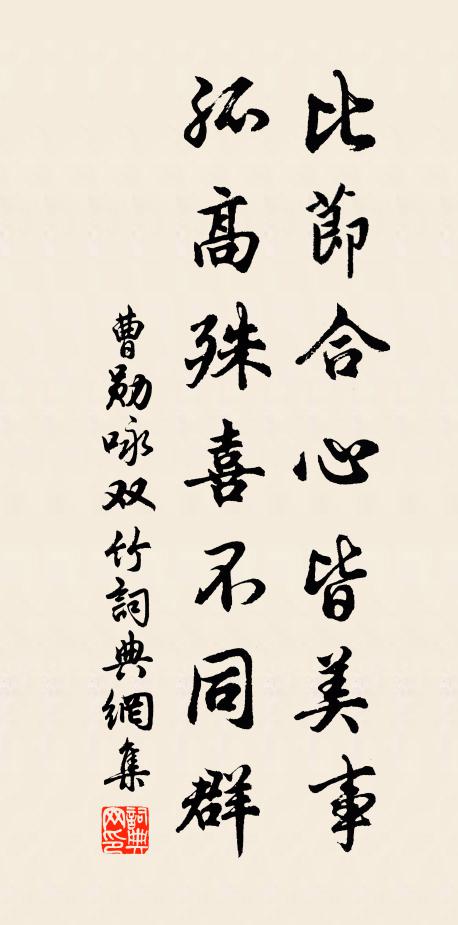 比節合心皆美事
孤高殊喜不同群
曹勛咏双竹詞典網集
詞典网印